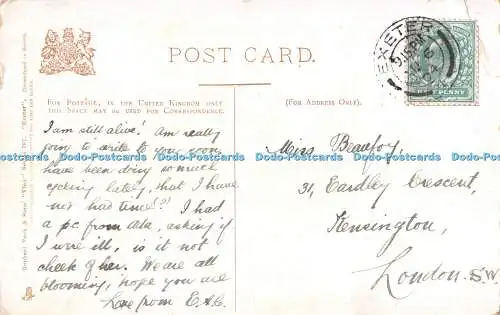 POST CARD.
FOR POSTAGE, IN THE UNITED KINGDOM ONLY,
THIS SPACE MAY BE USED FOR CORRESPONDENCE.
(FOR ADDRESS ONLY).
I am still alive! Am really
going to write to you soon
have been doing so much
cycling lately, that I have
not had time!?! I had
a p.c. from Ada, asking if
I were ill, is it not
cheek of her. We are all
blooming, hope you are
Love from E.A.C.
Miss Beaufoy,
31, Eardley Crescent,
Kensington,
London. S.W.
EXETER
PENNY
Dado-Postcards Dado-Postcards Dado-Postcards Dado-Postcards